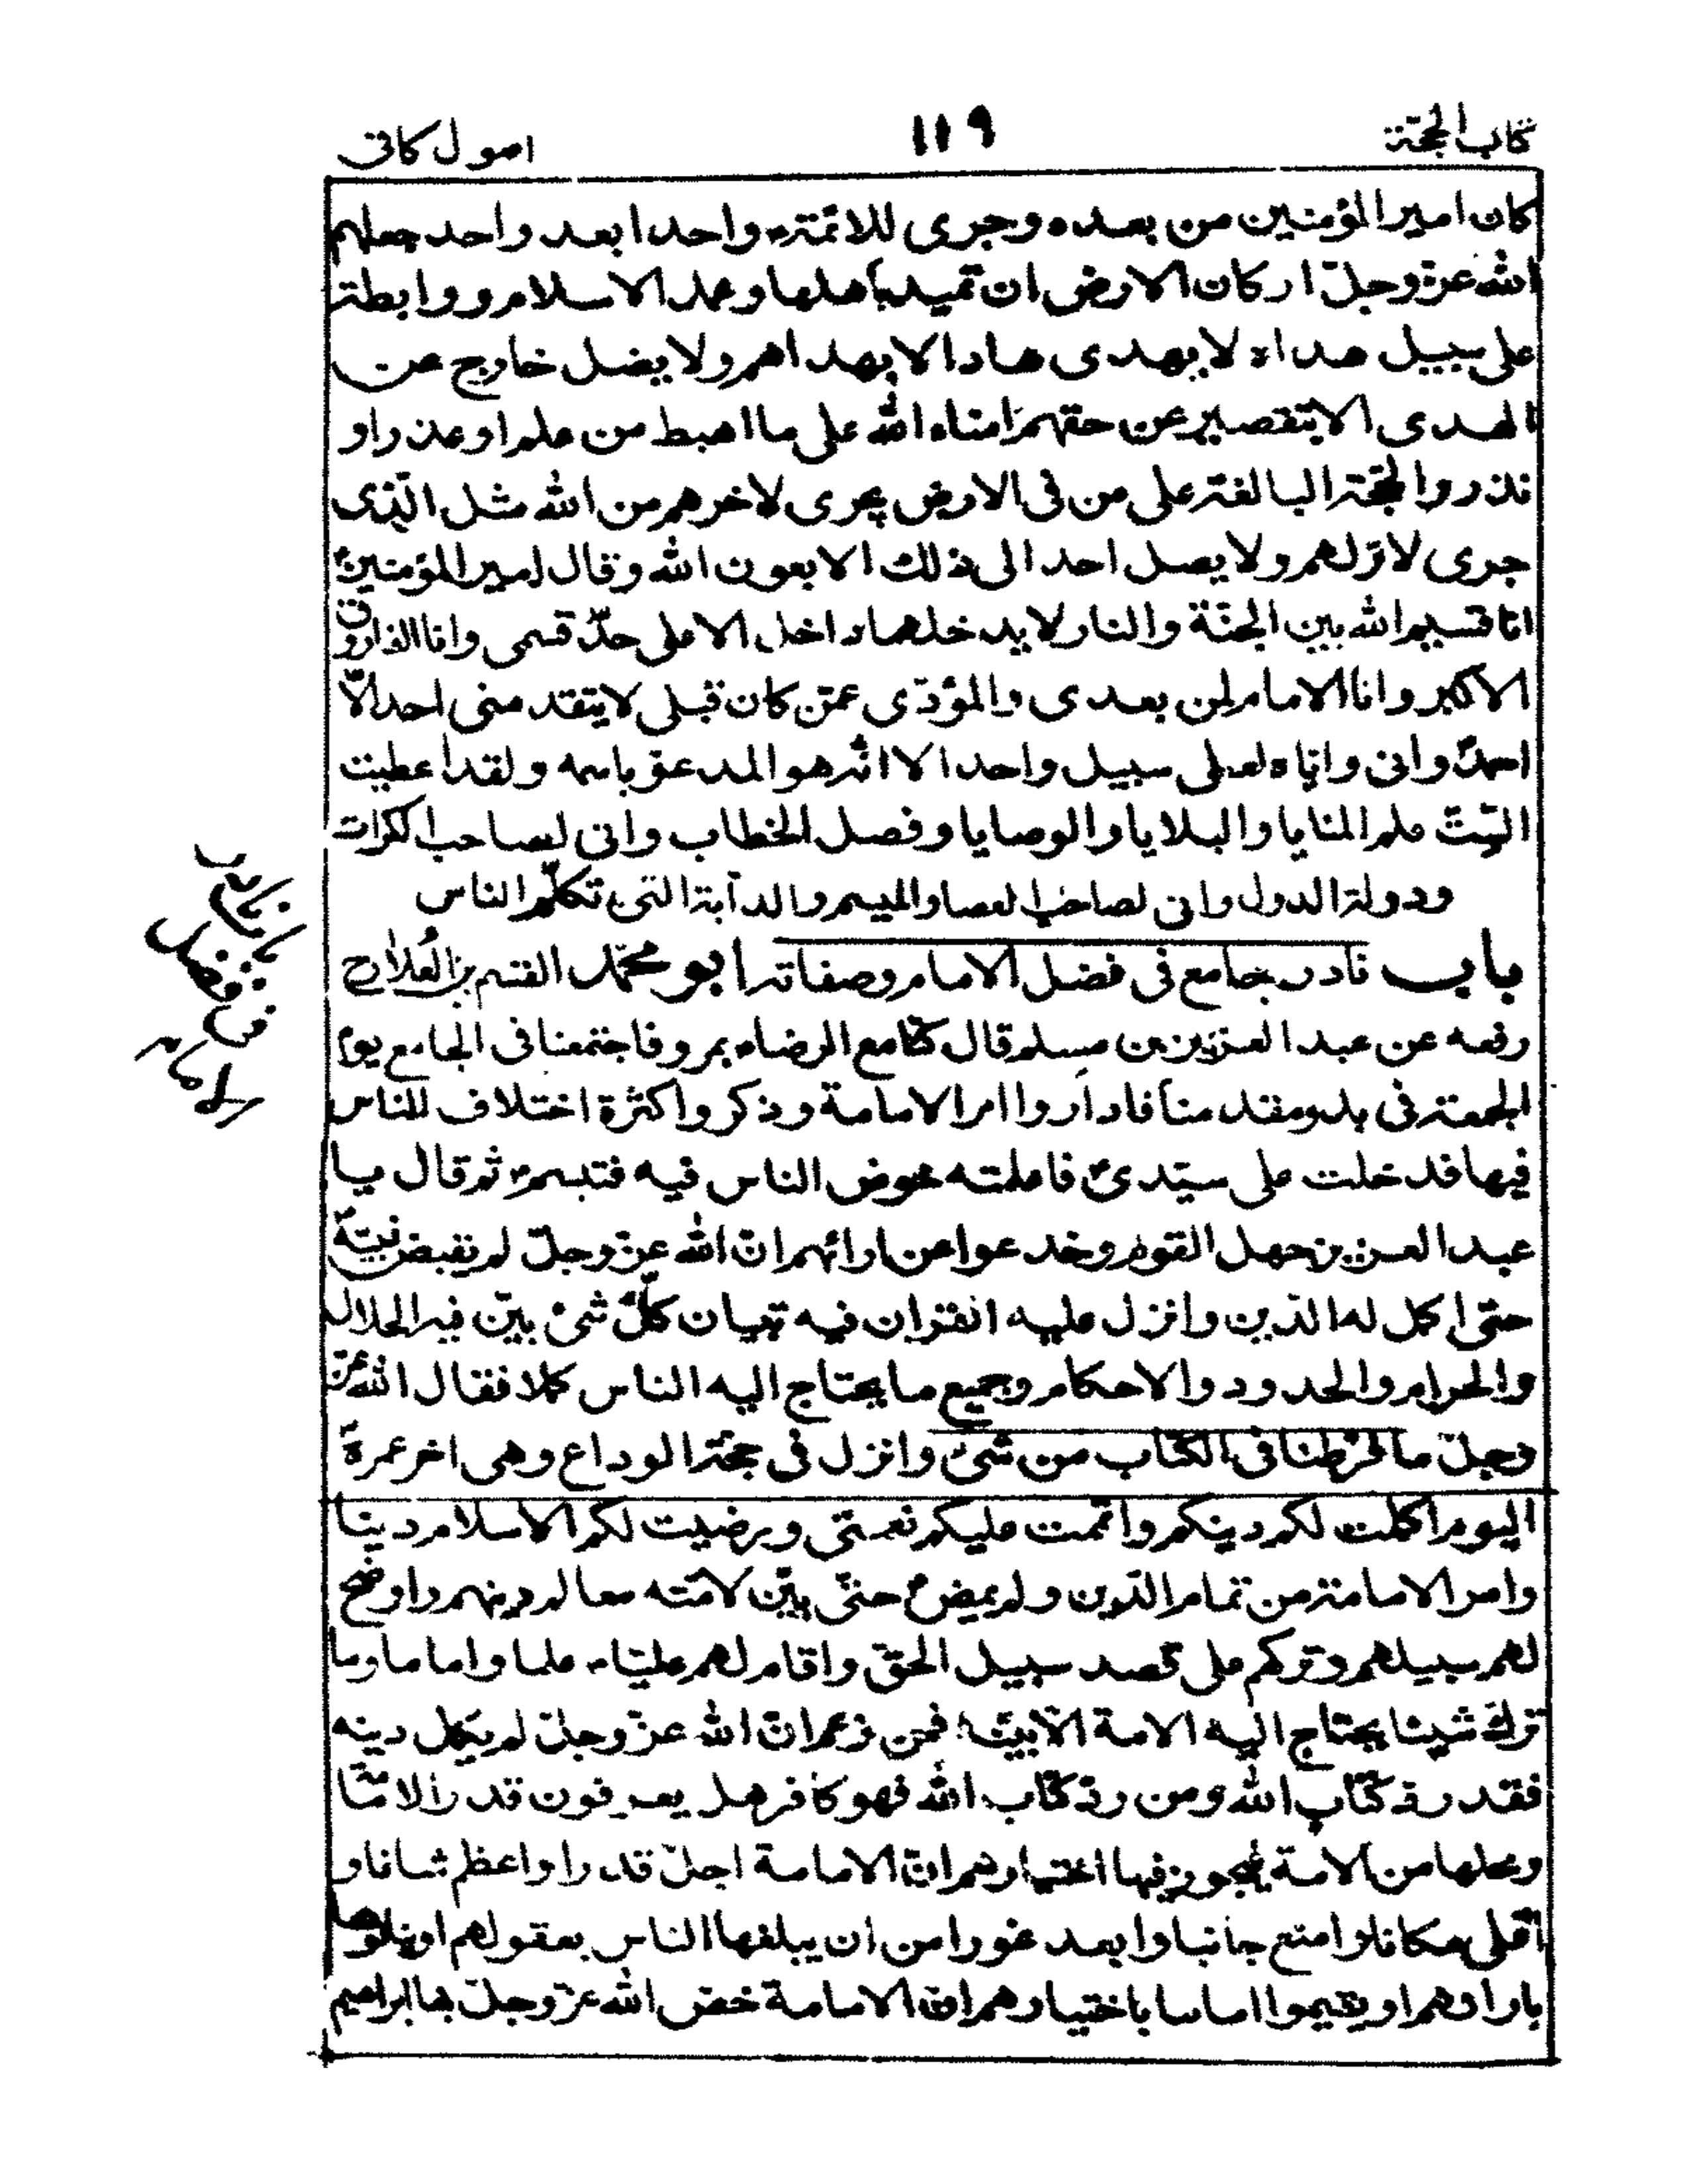 كتاب الحجة
١١٩
اصول كافى
كان امير المؤمنين من بعده وجرى للائمة واحدا بعد واحد جعلهم
الله عز وجل اركان الارض ان تميد باهلها وعمد الاسلام ورابطة
على سبيل هداه لا يهدى هاد الا بهداهم ولا يضل خارج عن
الهدى الا بتقصير عن حقهم امناء الله على ما اهبط من علم او عذر او
نذر والحجة البالغة على من فى الارض يجرى لاخرهم من الله مثل الذى
جرى لاولهم ولا يصل احد الى ذلك الا بعون الله وقال امير المؤمنين ع
انا قسيم الله بين الجنة والنار لا يدخلها داخل الا على حد قسمى وانا الفاروق
الاكبر وانا الامام لمن بعدى والمؤدى عمن كان قبلى لا يتقدمنى احد الا
احمد وانى واياه لعلى سبيل واحد الا انه هو المدعو باسمه ولقد اعطيت
الست علم المنايا والبلايا والوصايا وفصل الخطاب وانى لصاحب الكرات
ودولة الدول وانى لصاحب العصا والميسم والدابة التى تكلم الناس
باب نادر جامع فى فضل الامام وصفاته ابو محمد القسم بن العلاء رح
رفعه عن عبد العزيز بن مسلم قال كنا مع الرضاء بمرو فاجتمعنا فى الجامع يوم
الجمعة فى بدو مقدمنا فاداروا امر الامامة وذكروا كثرة اختلاف الناس
فيها فدخلت على سيدى ع فاعلمته خوض الناس فيه فتبسم ثم قال يا
عبد العزيز جهل القوم وخدعوا عن ارائهم ان الله عز وجل لم يقبض نبيه
حتى اكمل له الدين وانزل عليه القران فيه تبيان كل شئ بين فيه الحلال
والحرام والحدود والاحكام وجميع ما يحتاج اليه الناس كملا فقال الله عز
وجل ما فرطنا فى الكتاب من شئ وانزل فى حجة الوداع وهى اخر عمره
اليوم اكملت لكم دينكم واتممت عليكم نعمتى ورضيت لكم الاسلام دينا
وامر الامامة من تمام الدين ولم يمض ع حتى بين لامته معالم دينهم واوضح
لهم سبيلهم وتركهم على قصد سبيل الحق واقام لهم عليا علما واماما وما
ترك شيئا يحتاج اليه الامة الا بينه فمن زعم ان الله عز وجل لم يكمل دينه
فقد رد كتاب الله ومن رد كتاب الله فهو كافر هل يعرفون قدر الامامة
ومحلها من الامة فيجوز فيها اختيارهم ان الامامة اجل قدرا واعظم شانا و
اعلى مكانا وامنع جانبا وابعد غورا من ان يبلغها الناس بعقولهم او ينالوها
بارائهم او يقيموا اماما باختيارهم ان الامامة خص الله عز وجل بها ابراهيم